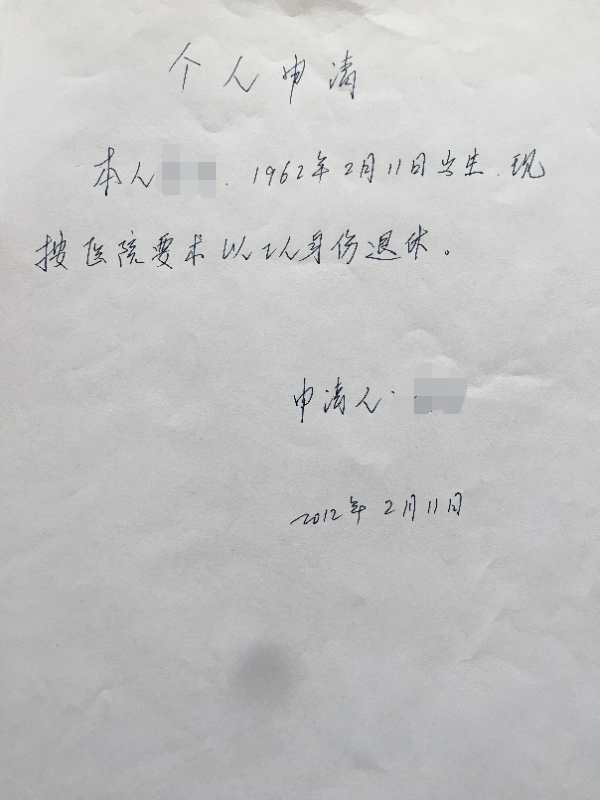 个人申请
本人 . 1962年2月11日出生. 现
按医院要求以工人身份退休。
申请人:
2012年2月11日